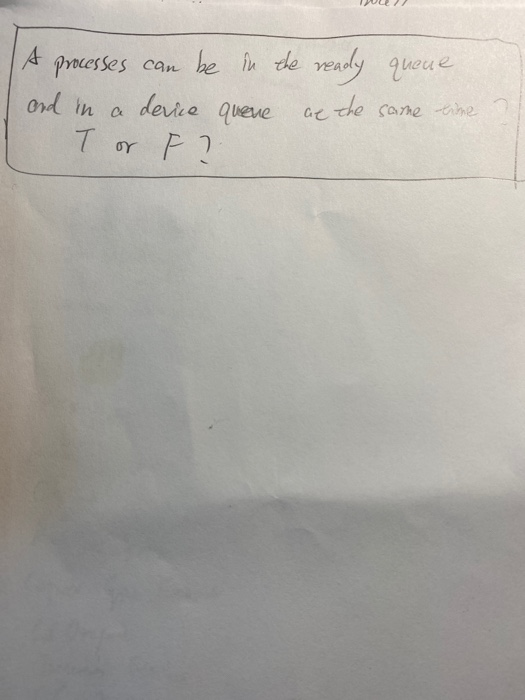 A processes can be in the ready queue
and in a device queue at the same time ?
T or F ?